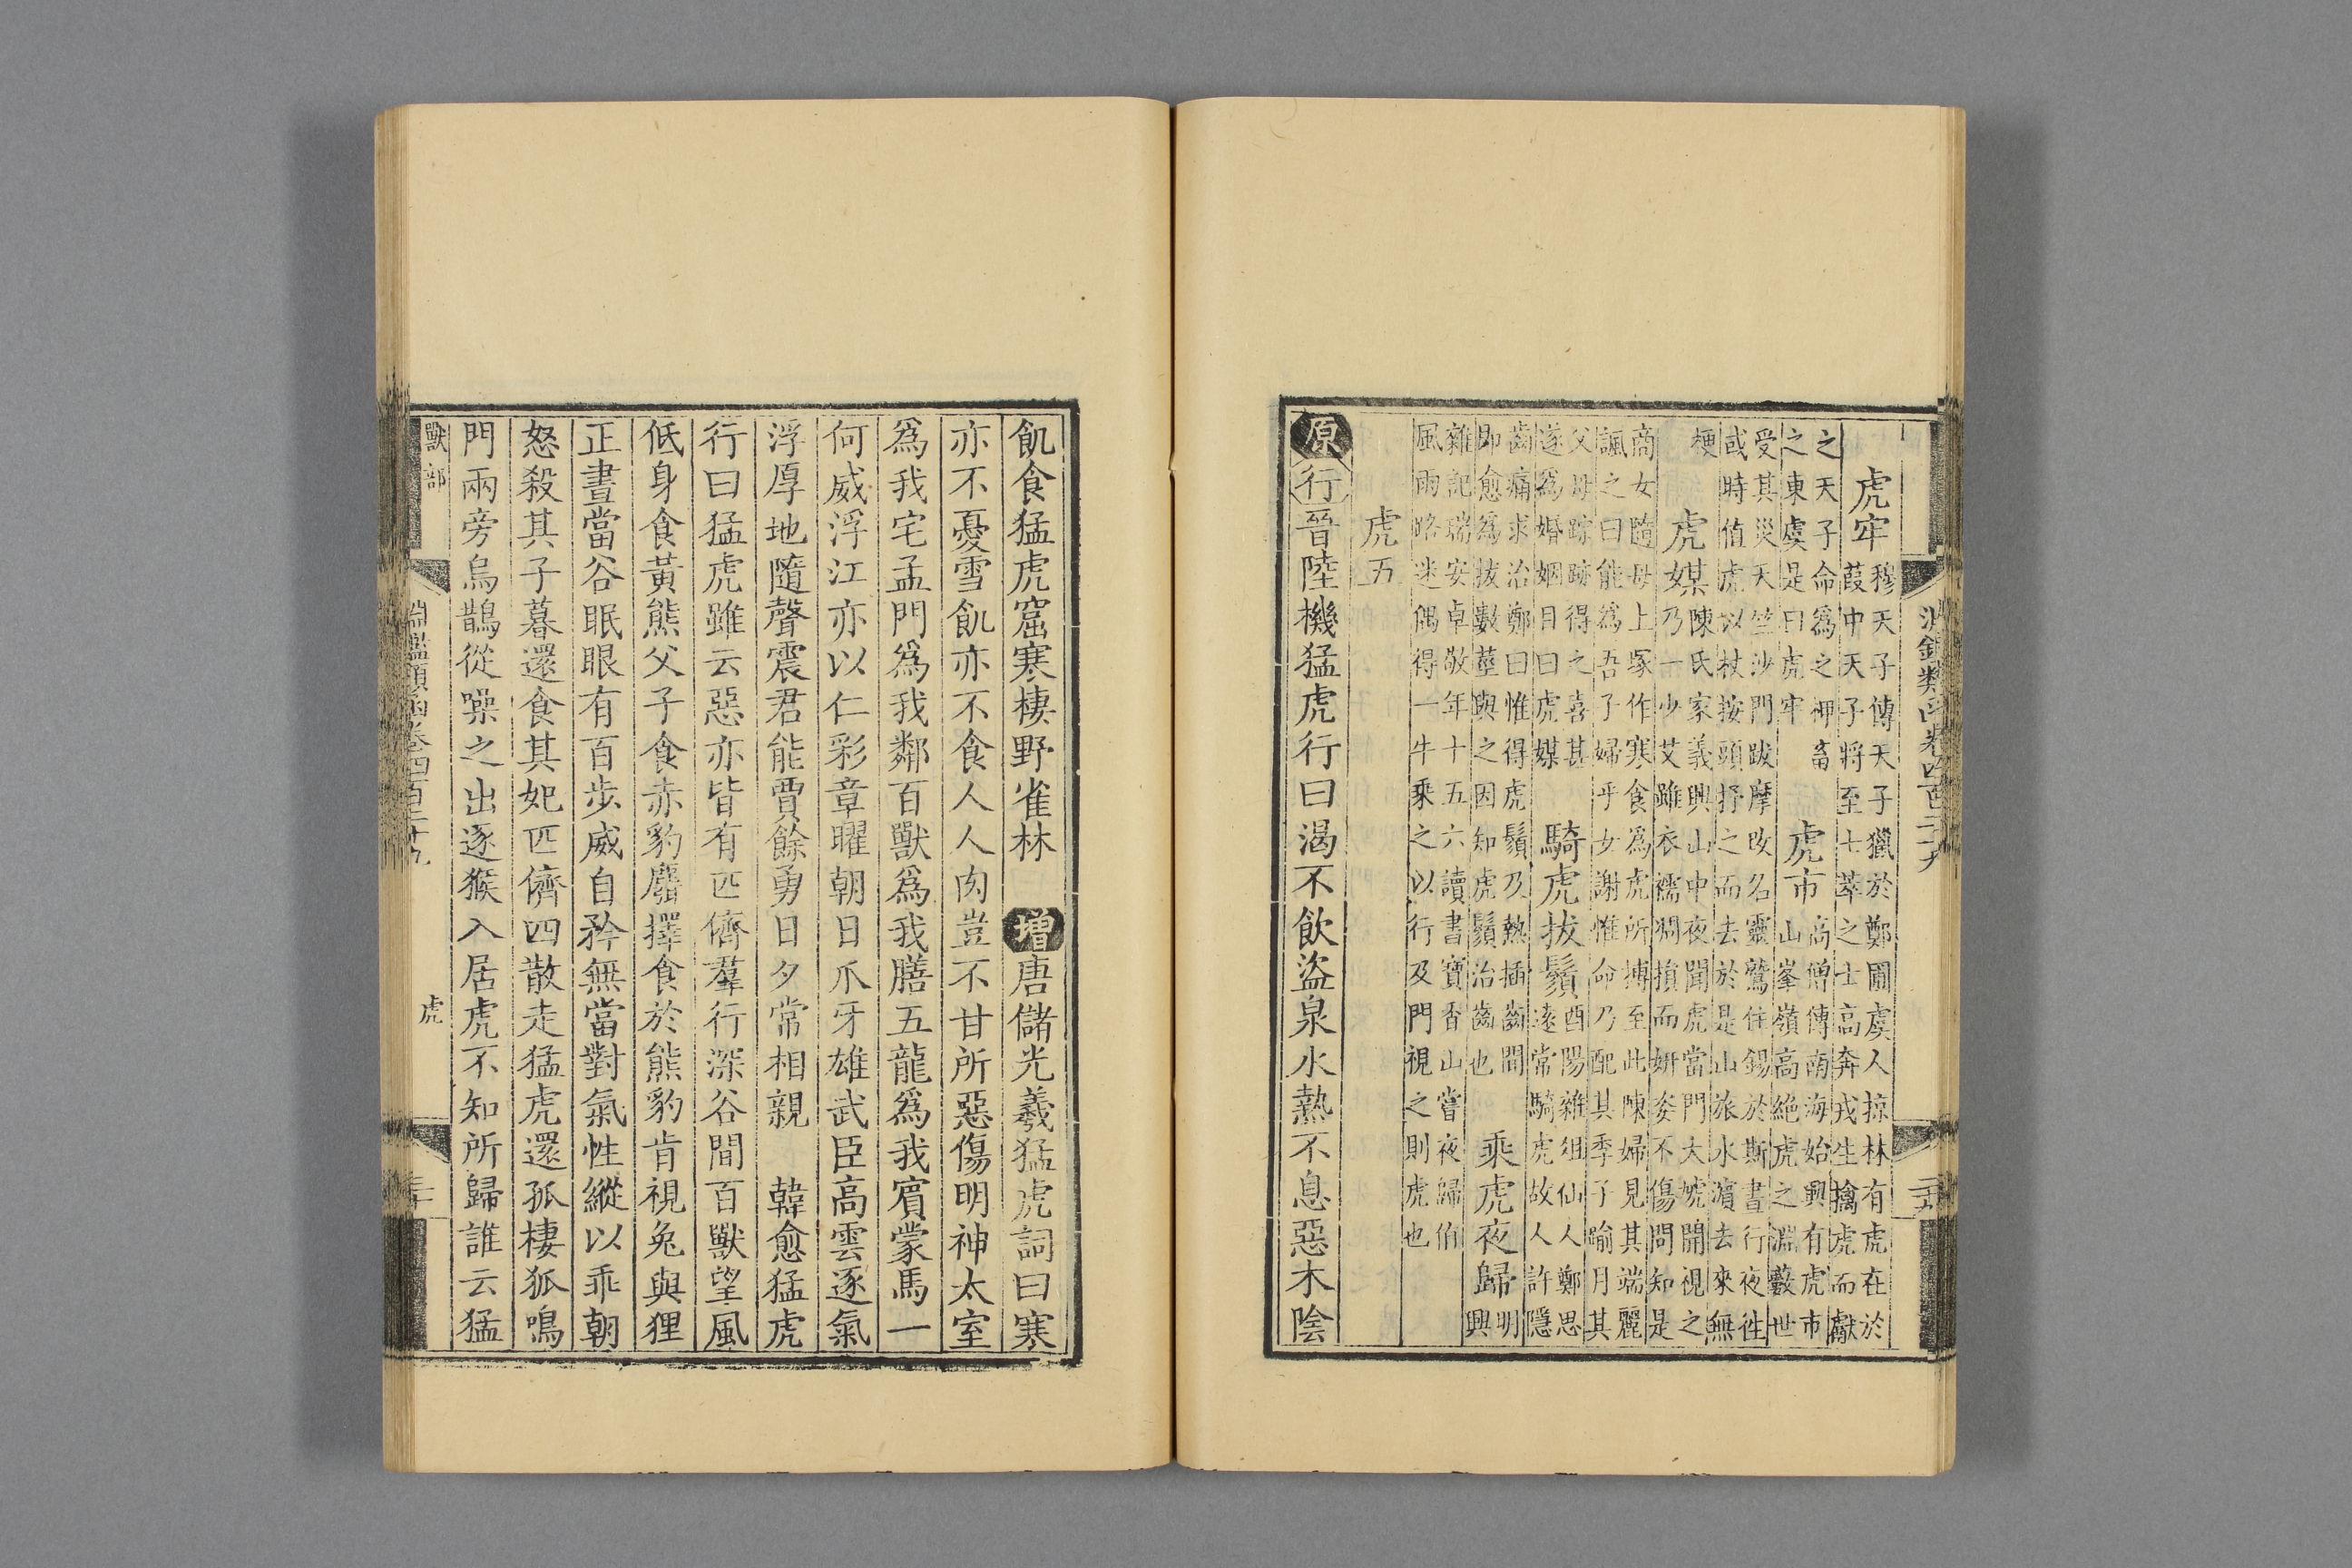 淵鑑類函卷四百二十九
二十九
虎牢
穆天子傳天子獵於鄭圃虞人掠林有虎在於
葭中天子將至七萃之士高奔戎生擒虎而獻
之天子命爲之柙畜
之東虞是曰虎牢
虎市
高僧傳南海始興有虎市
山峯嶺高絶虎之淵藪世
受其災天竺沙門跋摩改名靈鷲住錫於斯晝行夜徃
或時值虎以杖按頭抒之而去於是山旅水濵去來無
梗
虎媒
陳氏家義興山中夜聞虎當門大號開視之
乃一少艾雖衣襦凋損而妍姿不傷問知是
商女隨母上塚作寒食爲虎所搏至此陳婦見其端麗
諷之曰能爲吾子婦乎女謝惟命乃配其季子踰月其
父母踪跡得之喜甚
遂爲婚姻目曰虎媒
騎虎拔鬚
酉陽雜俎仙人鄭思
遠常騎虎故人許隱
齒痛求治鄭曰惟得虎鬚及熱插齒間
即愈爲拔數莖與之因知虎鬚治齒也
乘虎夜歸
明
興
雜記瑞安卓敬年十五六讀書寶香山嘗夜歸伯
風雨路迷偶得一牛乘之以行及門視之則虎也
虎五
原行晉陸機猛虎行曰渴不飲盜泉水熱不息惡木陰
飢食猛虎窟寒棲野雀林 增唐儲光羲猛虎詞曰寒
亦不憂雪飢亦不食人人肉豈不甘所惡傷明神太室
爲我宅孟門爲我鄰百獸爲我膳五龍爲我賓蒙馬一
何威浮江亦以仁彩章曜朝日爪牙雄武臣高雲逐氣
浮厚地隨聲震君能賈餘勇日夕常相親 韓愈猛虎
行曰猛虎雖云惡亦皆有匹儕羣行深谷間百獸望風
低身食黃熊父子食赤豹麛擇食於熊豹肯視兔與狸
正晝當谷眠眼有百步威自矜無當對氣性縱以乖朝
怒殺其子暮還食其妃匹儕四散走猛虎還孤棲狐鳴
門兩旁烏鵲從噪之出逐猴入居虎不知所歸誰云猛
獸部
淵鑑類函卷四百二十九
虎
三十